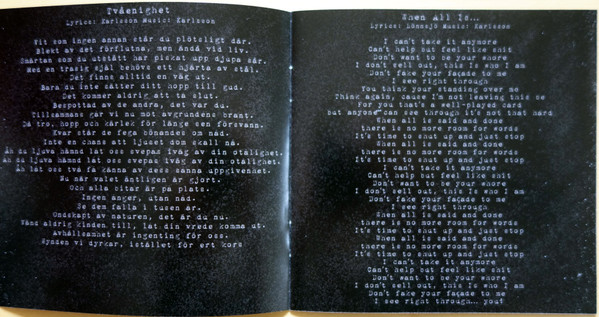 Tvåenighet
Lyrics: Karlsson Music: Karlsson
Vit som ingen annan står du plötsligt där.
Blekt av det förflutna, men ändå vid liv.
Smärtan som du utstått har piskat upp djupa sår.
Med en trasig själ behövs ett hjärta av stål.
Det finns alltid en väg ut.
Bara du inte sätter ditt hopp till gud.
Det kommer aldrig att ta slut.
Bespottad av de andra, det var du.
Tillsammans går vi nu mot avgrundens brant.
Då tro, hopp och kärlek för länge sen försvann.
Kvar står de fega bönandes om nåd.
Inte en chans att ljuset dom skall nå.
Åh du ljuva hämnd låt oss svepas iväg av din otålighet.
Åh du ljuva hämnd låt oss svepas iväg av din otålighet.
Åh låt oss två få känna av dess sanna uppgivenhet.
Nu när valet äntligen är gjort.
Och alla bitar är på plats.
Ingen ånger, utan nåd.
Se dem falla i tusen år.
Ondskapt av naturen, det är du nu.
Vänd aldrig kinden till, låt din vrede komma ut.
Avhållsamhet är ingenting för oss.
Synden vi dyrkar, istället för ert kors
When All Is...
Lyrics: Lännsjö Music: Karlsson
I can't take it anymore
Can't help but feel like shit
Don't want to be your whore
I don't sell out, this is who I am
Don't fake your façade to me
I see right through
You think your standing over me
Think again, cause I'm not leaving this be
For you that's a well-played card
But anyone can see through it's not that hard
When all is said and done
there is no more room for words
It's time to shut up and just stop
When all is said and done
there is no more room for words
It's time to shut up and just stop
I can't take it anymore
Can't help but feel like shit
Don't want to be your whore
I don't sell out, this is who I am
Don't fake your façade to me
I see right through
When all is said and done
there is no more room for words
It's time to shut up and just stop
When all is said and done
there is no more room for words
It's time to shut up and just stop
I can't take it anymore
Can't help but feel like shit
Don't want to be your whore
I don't sell out, this is who I am
Don't fake your façade to me
I see right through... you!